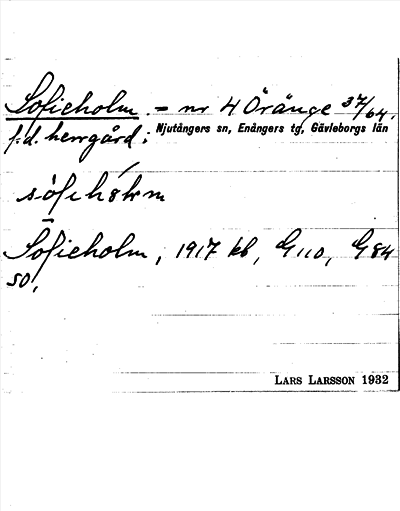 Sofieholm. – nr 4 Öränge 37/64.
f.d. herrgård; Njutångers sn, Enångers tg, Gävleborgs län
Sofieholm, 1917 kb, G110, G84
SO,
LARS LARSSON 1932